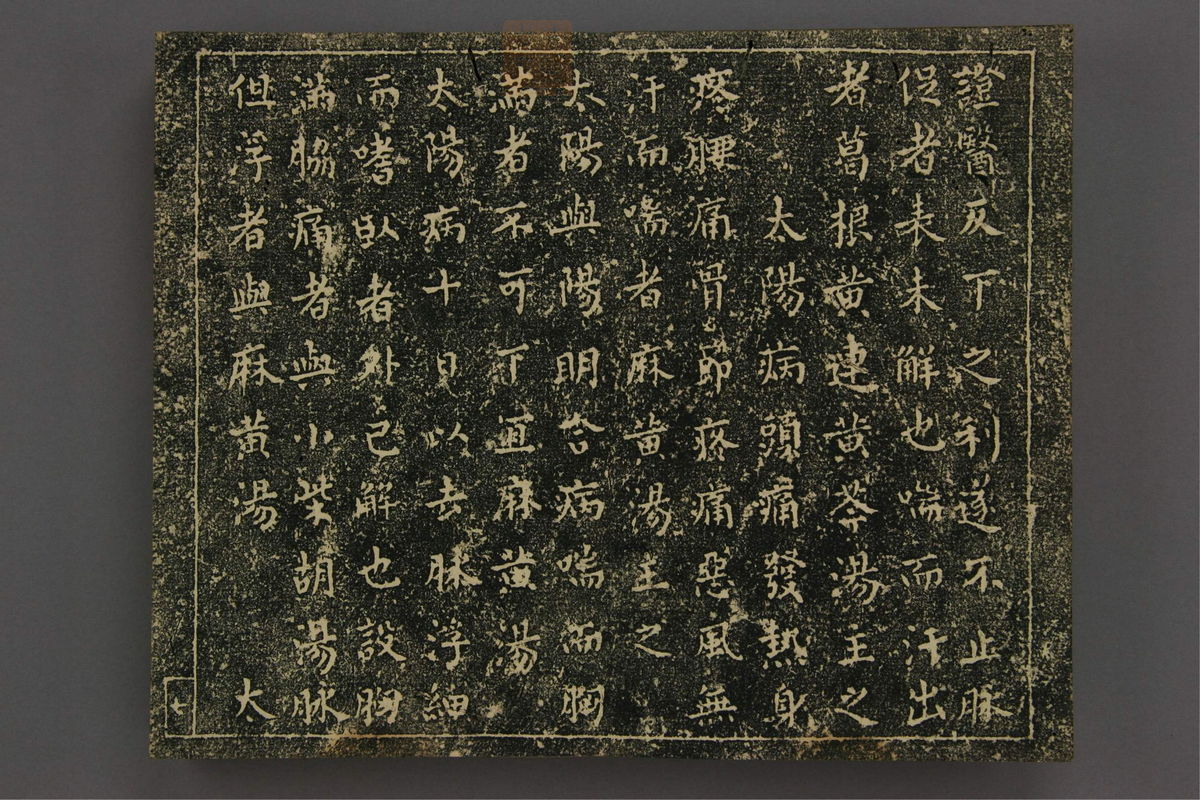 證醫反下之利遂不止脉
促者表未解也喘而汗出
者葛根黄連黄芩湯主之
太陽病頭痛發熱身
疼腰痛骨節疼痛惡風無
汗而喘者麻黄湯主之
太陽與陽明合病喘而胸
满者不可下宜麻黄湯
太陽病十日以去脉浮細
而嗜臥者外已解也設胸
满脇痛者與小柴胡湯脉
但浮者與麻黄湯 太
七